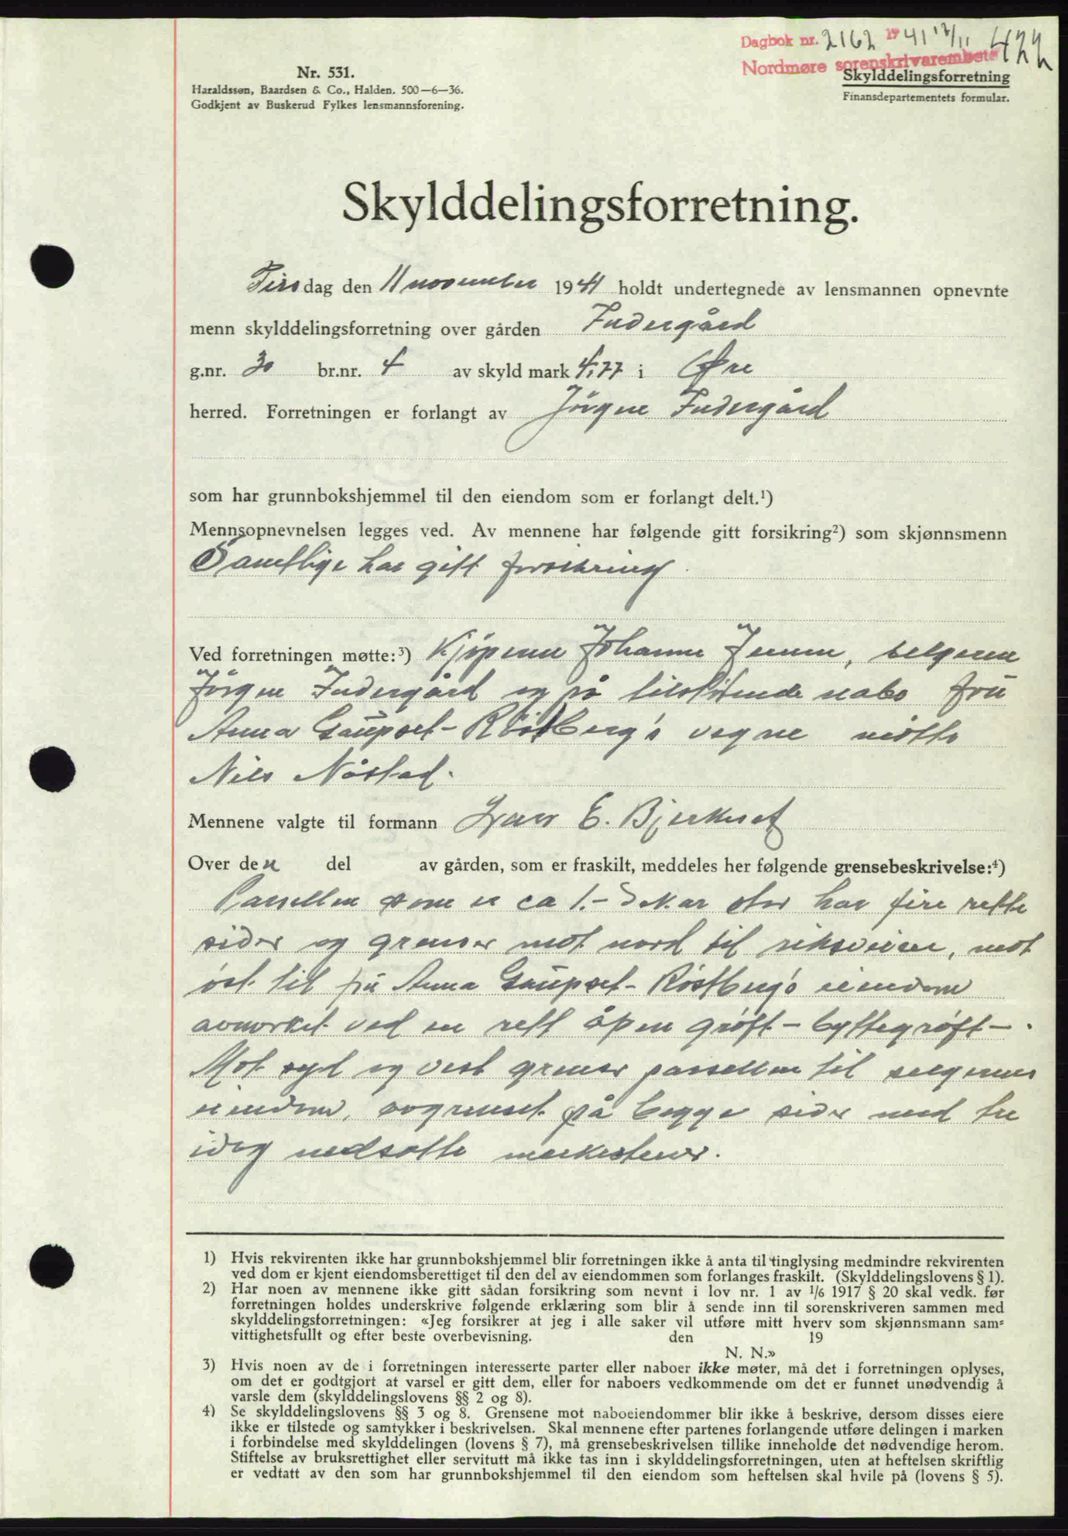 Dagbok nr. 2162 1941 12/11 422
Nordmøre sorenskrivarembete
Nr. 531.
Haraldssøn, Baardsen & Co., Halden. 500—6—36.
Godkjent av Buskerud Fylkes lensmannsforening.
Skylddelingsforretning
Finansdepartementets formular.
Skylddelingsforretning.
Tirsdag den 11 november 1941 holdt undertegnede av lensmannen opnevnte
menn skylddelingsforretning over gården Indergård
g.nr. 30 br.nr. 4 av skyld mark 4,77 i Øre
herred. Forretningen er forlangt av Jörgne Indergård
som har grunnbokshjemmel til den eiendom som er forlangt delt.¹)
Mennsopnevnelsen legges ved. Av mennene har følgende gitt forsikring²) som skjønnsmenn
Samtlige har gitt forsikring.
Ved forretningen møtte:³) Kjöperen Johanne Jensen, selgeren
Jörgne Indergård og på tilstötende nabo frü
Anna Gaupset-Röstberg's vegne mötte
Nils Nåstad.
Mennene valgte til formann Ivar E. Bjerkeset
Over den del av gården, som er fraskilt, meddeles her følgende grensebeskrivelse:⁴)
Parsellen som er ca 1.- Dekar stor har fire rette
sider og grenser mot nord til riksveien, mot
øst til frü Anna Gaupset-Röstberg's eiendom
avmerket ved en rett åpen grøft - byttegrøft -.
Mot syd og vest grenser parsellen til selgerens
eiendom, avgrenset på begge sider med tre
idag nedsatte merkestener.
1) Hvis rekvirenten ikke har grunnbokshjemmel blir forretningen ikke å anta til tinglysing medmindre rekvirenten
ved dom er kjent eiendomsberettiget til den del av eiendommen som forlanges fraskilt. (Skylddelingslovens § 1).
2) Har noen av mennene ikke gitt sådan forsikring som nevnt i lov nr. 1 av 1/6 1917 § 20 skal vedk. før
forretningen holdes underskrive følgende erklæring som blir å sende inn til sorenskriveren sammen med
skylddelingsforretningen: «Jeg forsikrer at jeg i alle saker vil utføre mitt hverv som skjønnsmann sam-
vittighetsfullt og efter beste overbevisning. den 19
N. N.»
3) Hvis noen av de i forretningen interesserte parter eller naboer ikke møter, må det i forretningen oplyses,
om det er godtgjort at varsel er gitt dem, eller for naboers vedkommende om det er funnet unødvendig å
varsle dem (skylddelingslovens §§ 2 og 8).
4) Se skylddelingslovens §§ 3 og 8. Grensene mot naboeiendommer blir ikke å beskrive, dersom disses eiere
ikke er tilstede og samtykker i beskrivelsen. Skal mennene efter partenes forlangende utføre delingen i marken
i forbindelse med skylddelingen (lovens § 7), må grensebeskrivelsen tillike inneholde det nødvendige herom.
Stiftelse av bruksrettighet eller servitutt må ikke tas inn i skylddelingsforretningen, uten at heftelsen skriftlig
er vedtatt av den som har grunnbokshjemmel til den eiendom som heftelsen skal hvile på (lovens § 5).